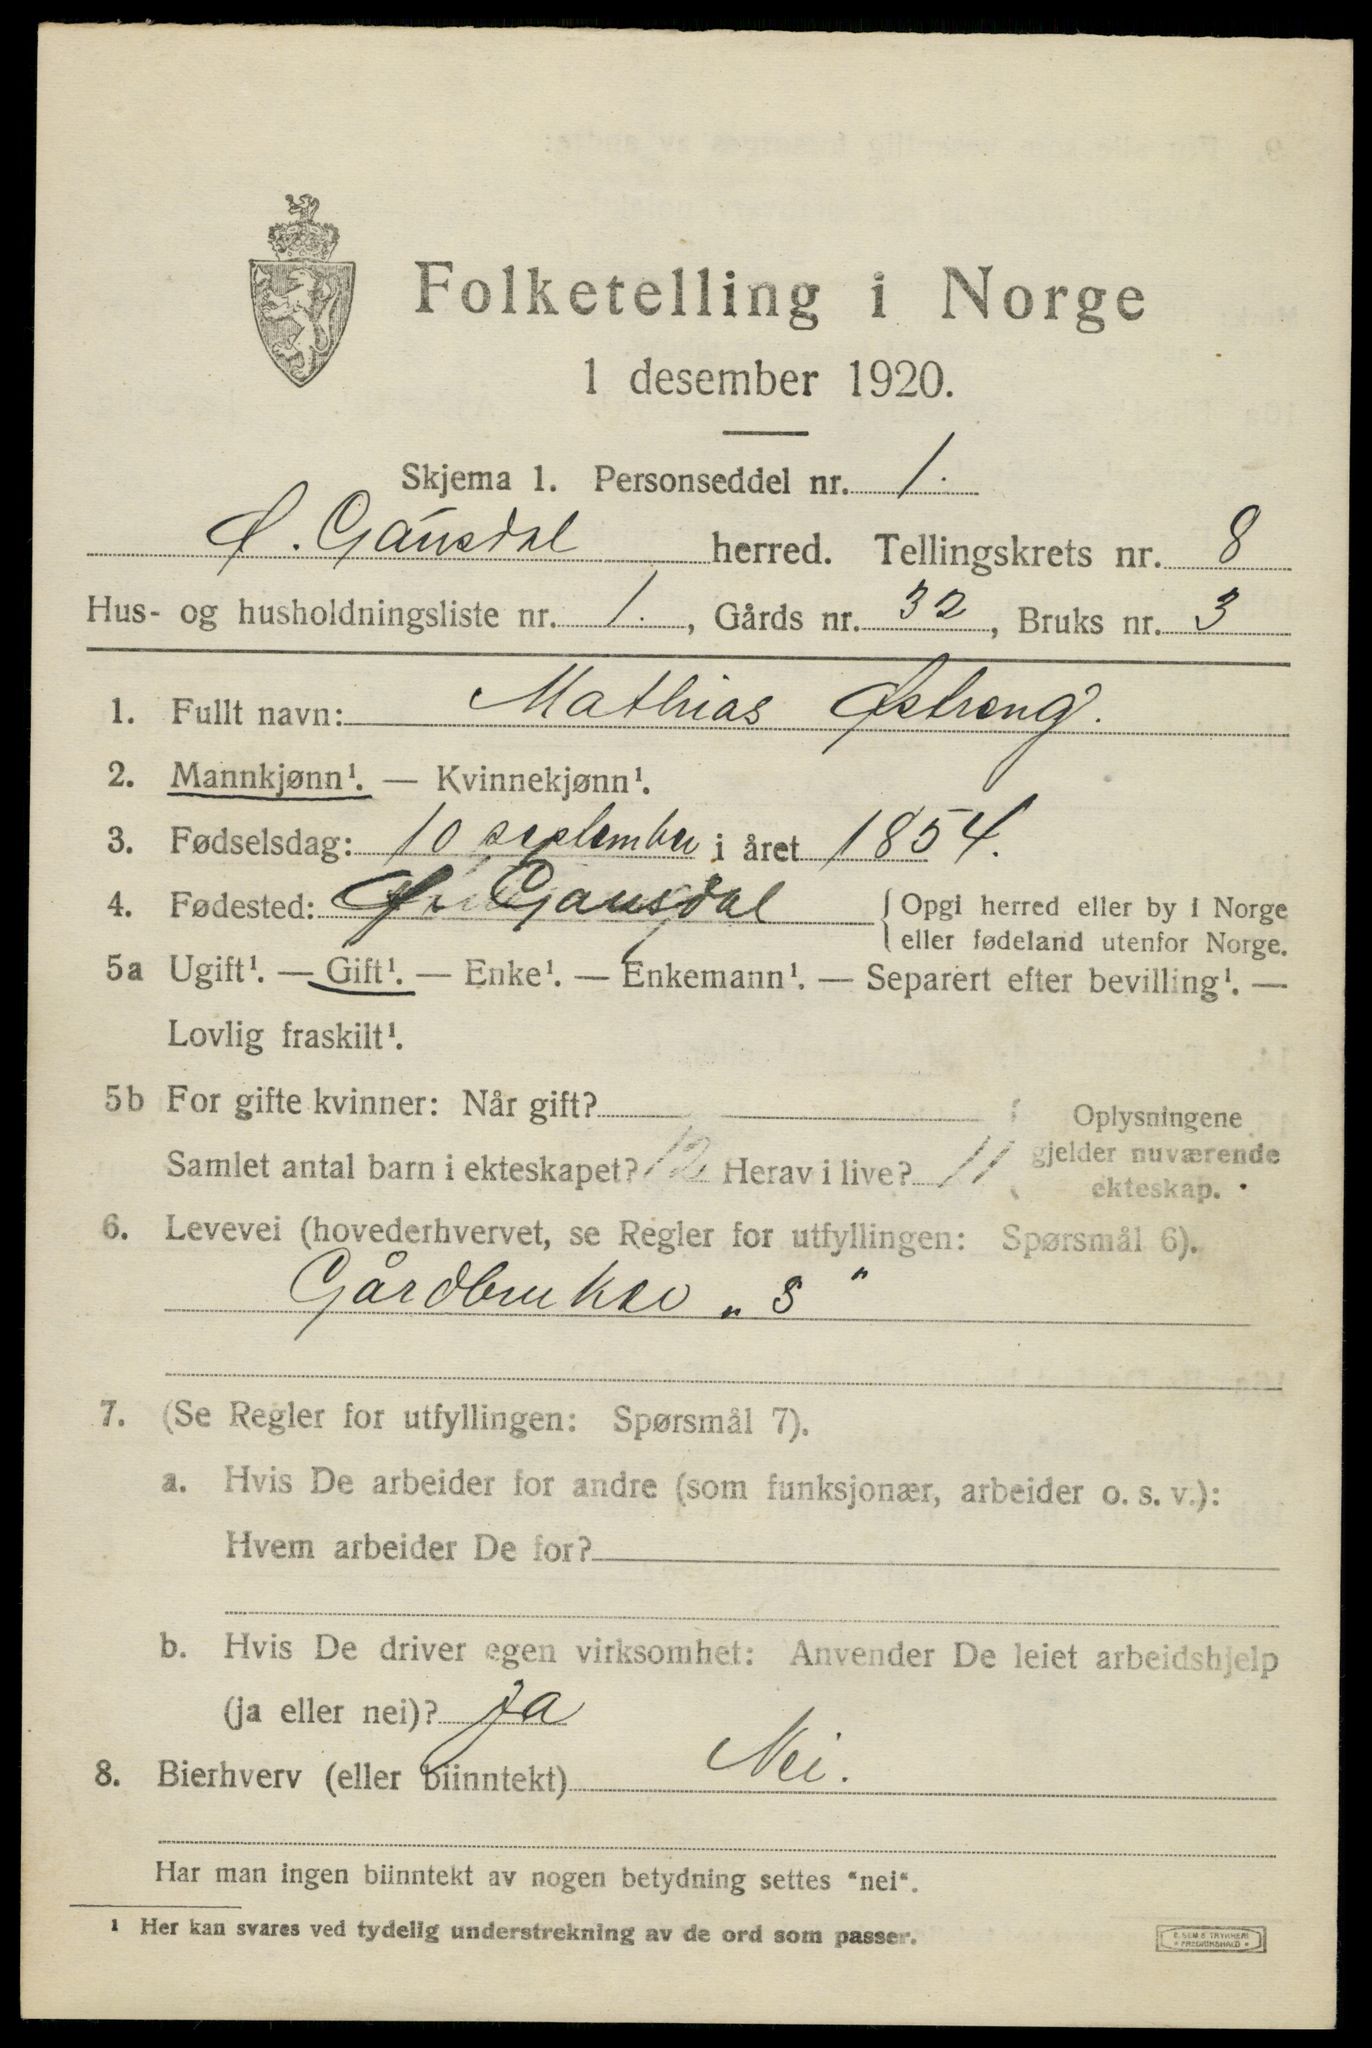 Folketelling i Norge
1 desember 1920.
Skjema 1. Personseddel nr. 1.
Ø. Gausdal herred. Tellingskrets nr. 8
Hus- og husholdningsliste nr. 1. , Gårds nr. 32 , Bruks nr. 3
1. Fullt navn: Mathias Østreng.
2. Mannkjønn¹. — Kvinnekjønn¹.
3. Fødselsdag: 10 september i året 1854.
4. Fødested: Ø. Gausdal { Opgi herred eller by i Norge
eller fødeland utenfor Norge.
5a Ugift¹. — Gift¹. — Enke¹. — Enkemann¹. — Separert efter bevilling¹. —
Lovlig fraskilt¹.
5b For gifte kvinner: Når gift?
Samlet antal barn i ekteskapet? 12 Herav i live? 11
Oplysningene
gjelder nuværende
ekteskap.
6. Levevei (hovederhvervet, se Regler for utfyllingen: Spørsmål 6).
Gårdbruker „S"
7. (Se Regler for utfyllingen: Spørsmål 7).
a. Hvis De arbeider for andre (som funksjonær, arbeider o. s. v.):
Hvem arbeider De for?
b. Hvis De driver egen virksomhet: Anvender De leiet arbeidshjelp
(ja eller nei)? Ja
8. Bierhverv (eller biinntekt) Nei.
Har man ingen biinntekt av nogen betydning settes "nei".
¹ Her kan svares ved tydelig understrekning av de ord som passer.
E. SEM'S TRYKKERI
• FREDRIKSHALD •